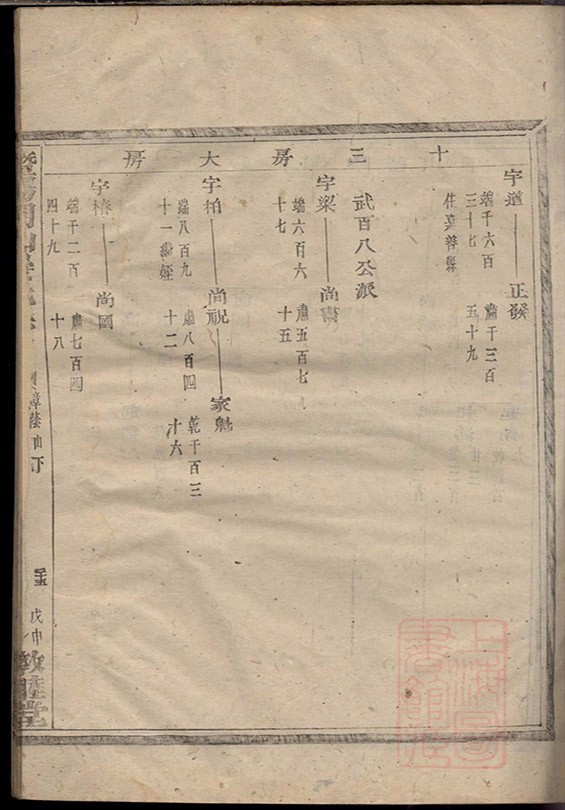 十三房大房
宇道
端千六百
三十七
住嘉善縣
正發
肅千三百
五十九
武百八公派
宇梁
端六百六
十七
尚書
肅五百七
十五
宇柏
端八百九
十一
尚祝
肅八百四
十二
家魁
乾千百三
十六
宇椿
端千二百
四十九
尚國
肅七百四
十八
戊申
敦睦堂